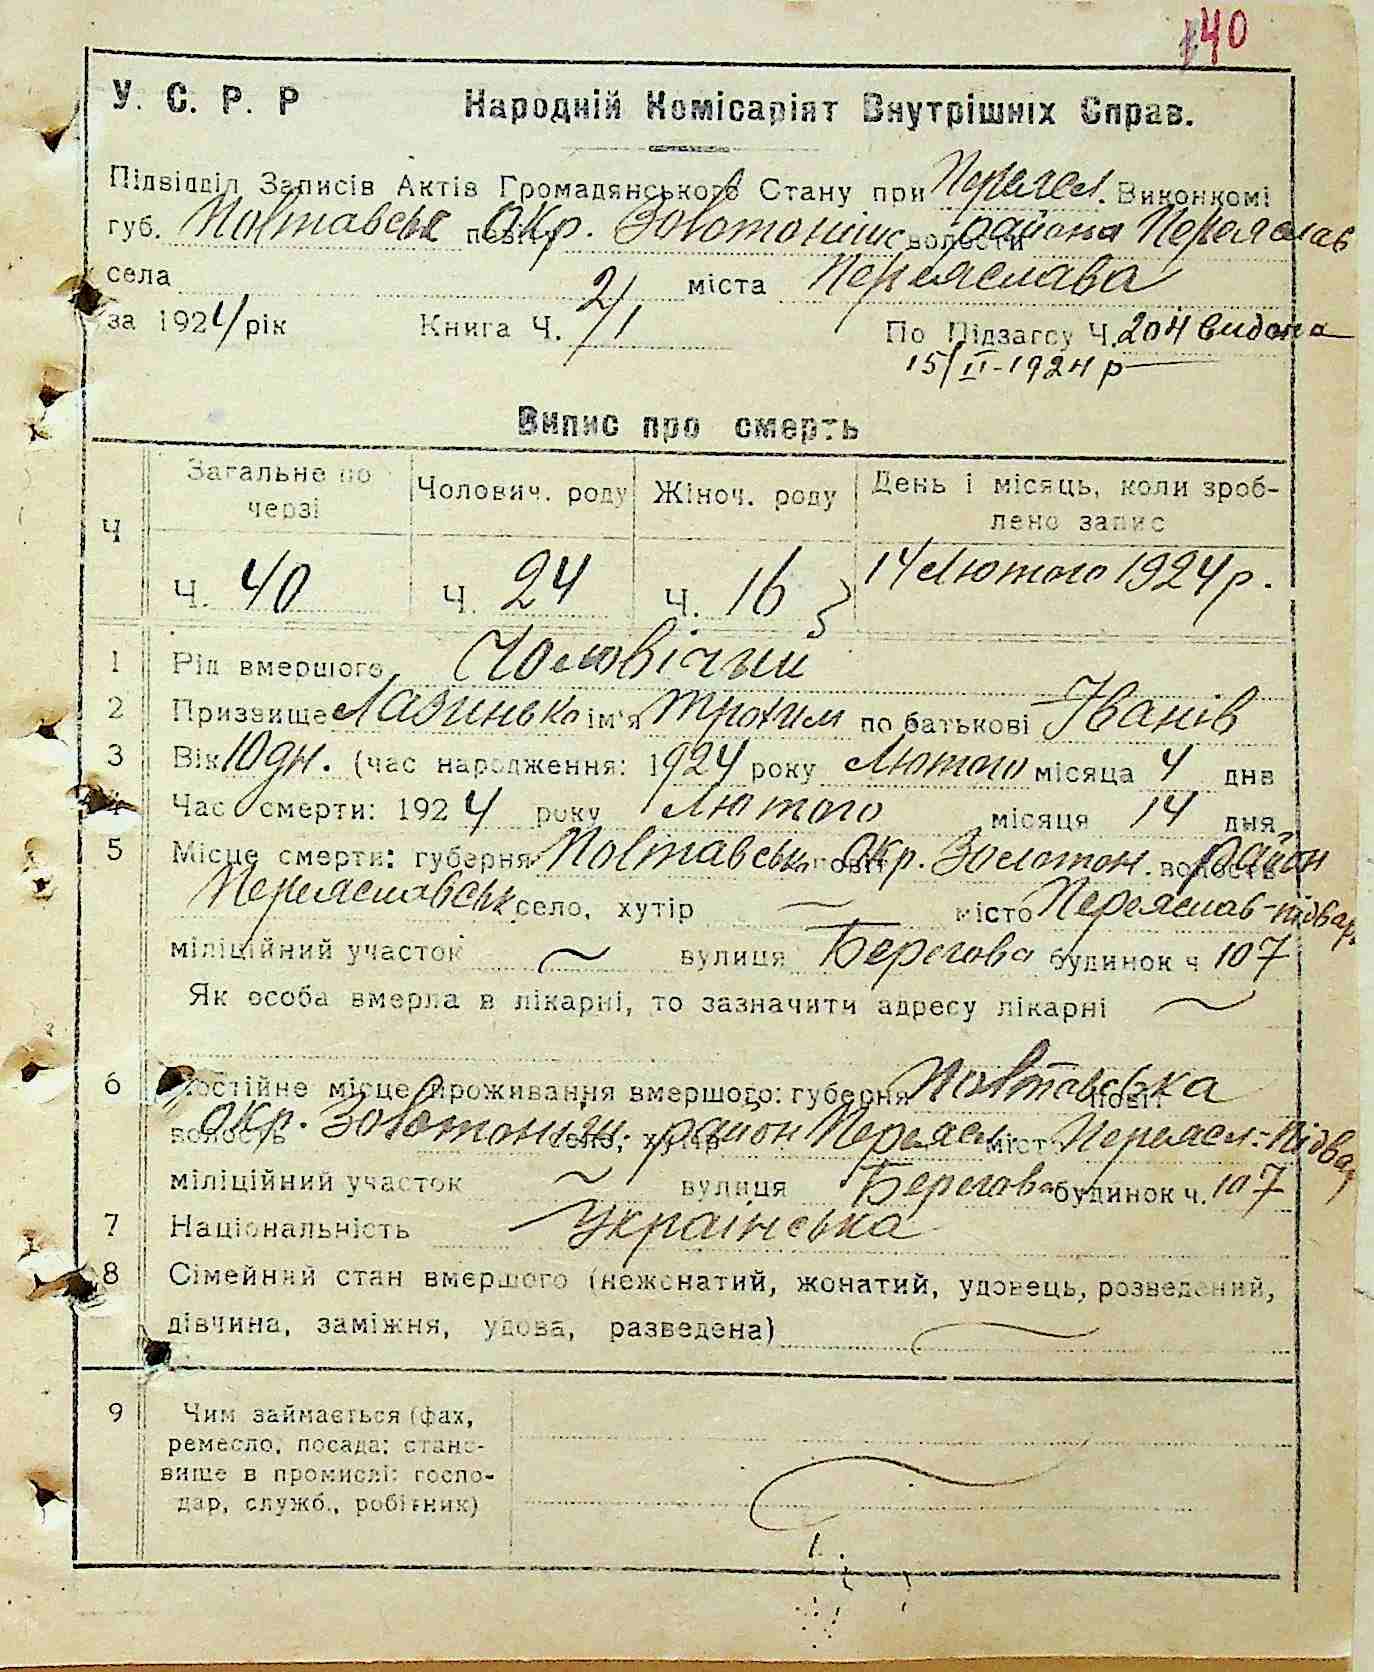 140
У. С. Р. Р Народній Комісаріят Внутрішніх Справ.
Підвідділ Записів Актів Громадянського Стану при Переясл. Виконкомі
губ. Полтавськ повіт окр. Золотоніш волости района Переяслав
села 2/1 міста Переяслава
за 1924 рік Книга Ч. По Підзагсу Ч. 204 видана
15/II-1924 р
Випис про смерть
Ч Загальне по черзі Чолович. роду Жіноч. роду День і місяць, коли зроб-
лено запис
Ч. 40 Ч. 24 Ч. 16 14 Лютого 1924 р.
1 Рід вмершого Чоловічий
2 Призвище Лазинько ім'я Трохим по батькові Іванів
3 Вік 10 дн. (час народження: 1924 року Лютого місяца 4 дня
4 Час смерти: 1924 року Лютого місяця 14 дня
5 Місце смерти: губерня Полтавськ повіт окр. Золотон. волость район
Переяславськ село, хутір місто Переяслав-підвар.
міліційний участок вулиця Берегова будинок ч 107
Як особа вмерла в лікарні, то зазначити адресу лікарні
6 Постійне місце проживання вмершого: губерня Полтавська повіт
волость окр. Золотоніш село, хутір район Переясл. місто Переясл.-підвар
міліційний участок вулиця Берегова будинок ч. 107
7 Національність Українська
8 Сімейний стан вмершого (нежонатий, жонатий, удовець, розведений,
дівчина, заміжня, удова, разведена)
9 Чим займається (фах,
ремесло, посада; стано-
вище в промислі: госпо-
дар, служб., робітник)